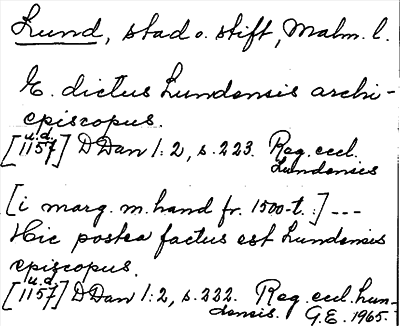 Lund, stad o. stift, Malm. l.
E. dictus Lundensis archi-
episcopus.
u.d.
[1157] DDan 1:2, s. 223. Reg. eccl.
Lundensis
[i marg. m. hand fr. 1500-t.:] ---
Hic postea factus est Lundensis
episcopus.
u.d.
[1157] DDan 1:2, s. 222. Reg. eccl. Lun-
densis. G.E. 1965.